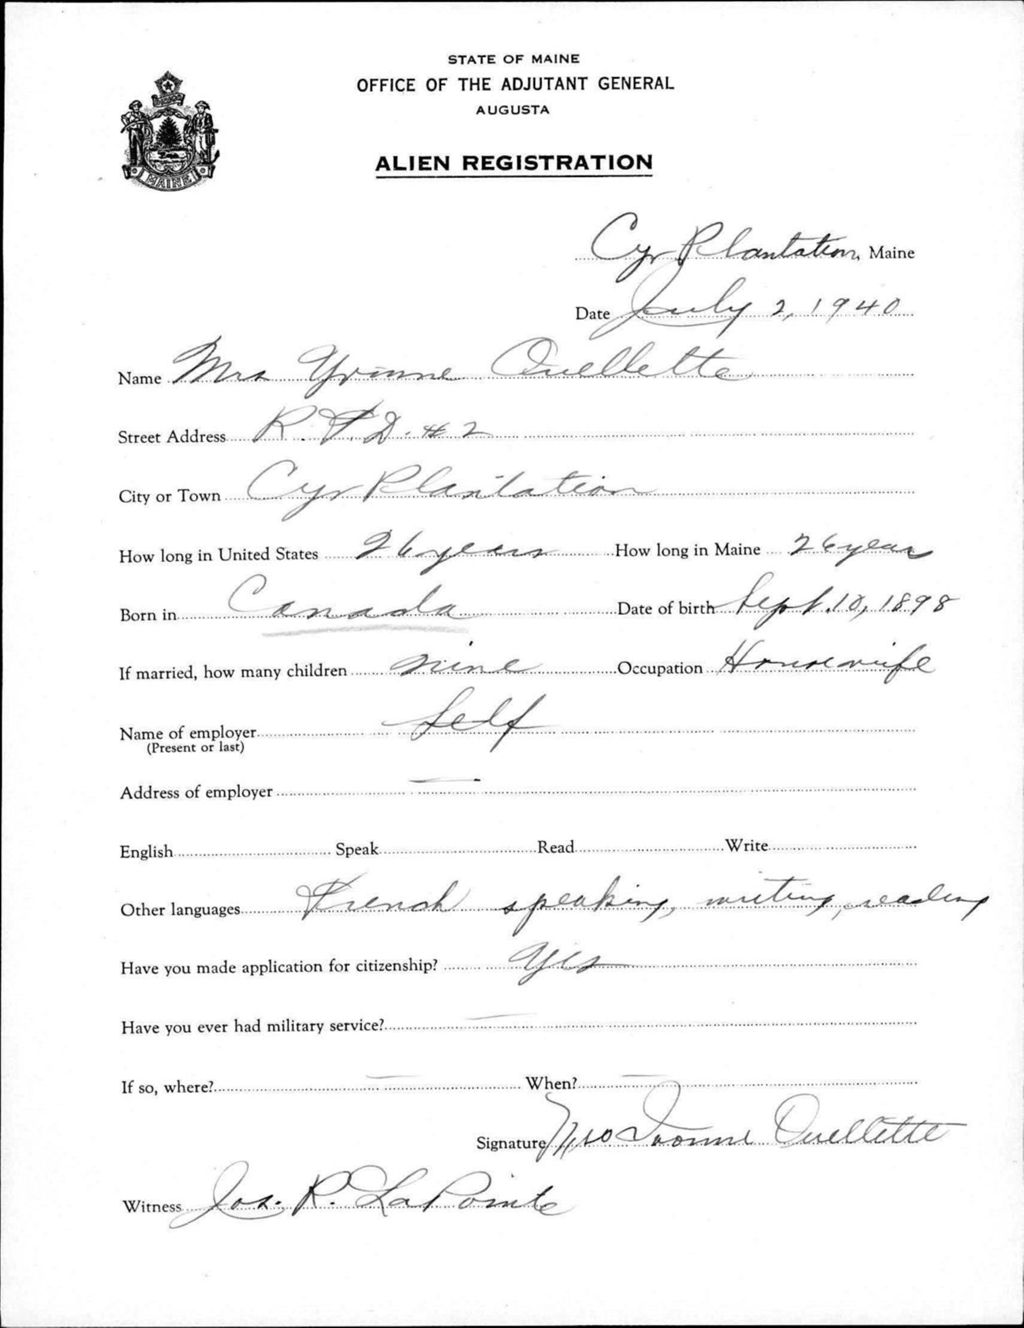 STATE OF MAINE
OFFICE OF THE ADJUTANT GENERAL
AUGUSTA
MAINE
ALIEN REGISTRATION
Cyr Plantation, Maine
Date July 2, 1940
Name Mrs Yvonne Ouellette
Street Address R. F. D. #2
City or Town Cyr Plantation
How long in United States 26 years How long in Maine 26 years
Born in Canada Date of birth Sept. 10, 1898
If married, how many children nine Occupation Housewife
Name of employer Self
(Present or last)
Address of employer —
English Speak Read Write
Other languages French speaking, writing, reading
Have you made application for citizenship? Yes
Have you ever had military service? —
If so, where? — When? —
Signature Mrs Ivonne Ouellette
Witness Jos. R. LaPointe